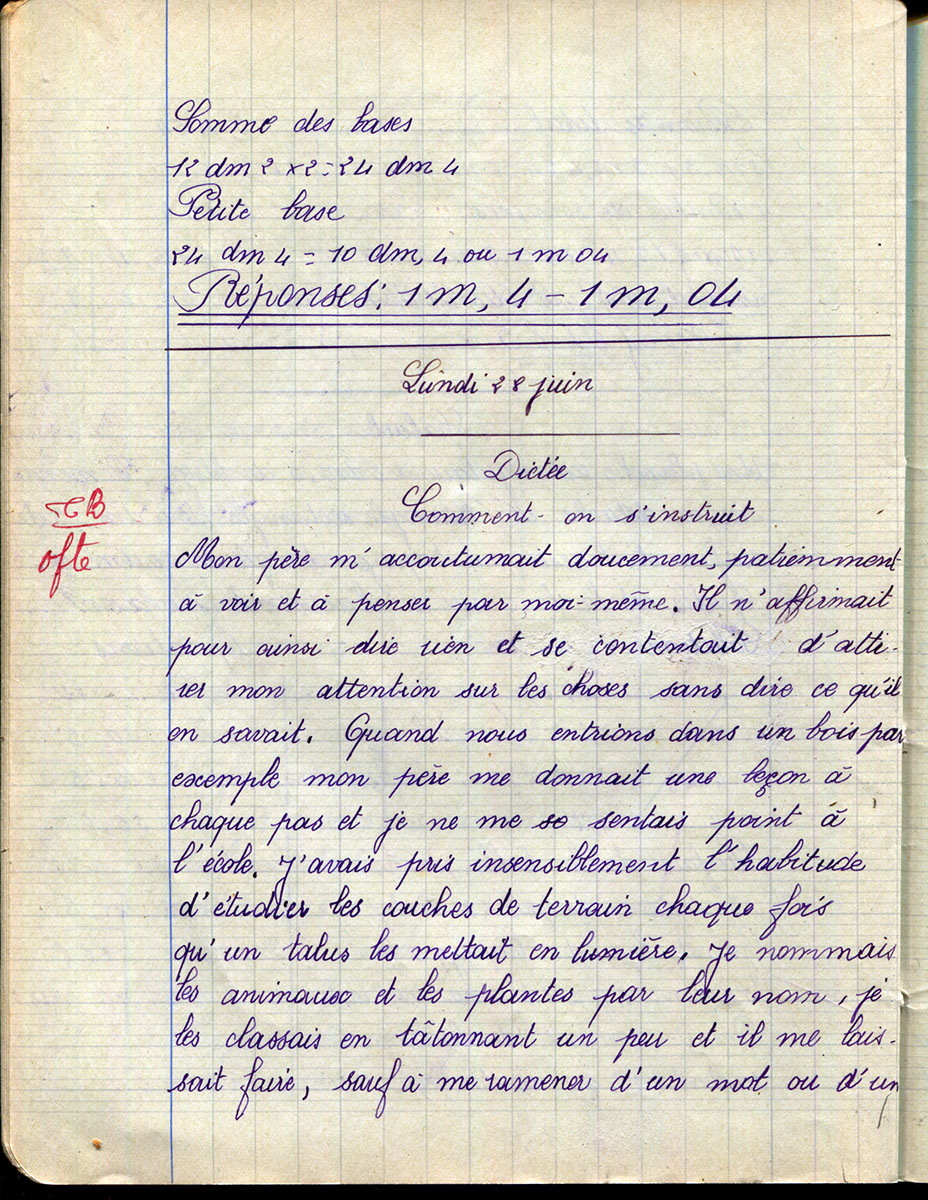 Somme des bases
12 dm 2 x 2 = 24 dm 4
Petite base
24 dm 4 = 10 dm, 4 ou 1 m 04
Réponses : 1 m, 4 - 1 m, 04
Lundi 28 juin
Dictée
Comment on s'instruit
TB
ofte
Mon père m'accoutumait doucement, patiemment
à voir et à penser par moi-même. Il n'affirmait
pour ainsi dire rien et se contentait d'atti-
rer mon attention sur les choses sans dire ce qu'il
en savait. Quand nous entrions dans un bois par
exemple mon père me donnait une leçon à
chaque pas et je ne me so sentais point à
l'école. J'avais pris insensiblement l'habitude
d'étudier les couches de terrain chaque fois
qu'un talus les mettait en lumière. Je nommais
les animaux et les plantes par leur nom, je
les classais en tâtonnant un peu et il me lais-
sait faire, sauf à me ramener d'un mot ou d'un